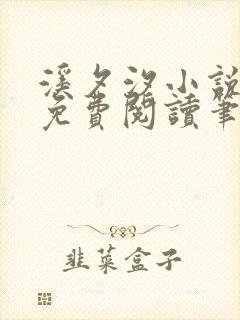 溪夕汐小說
免費閱讀筆
韭菜盒子